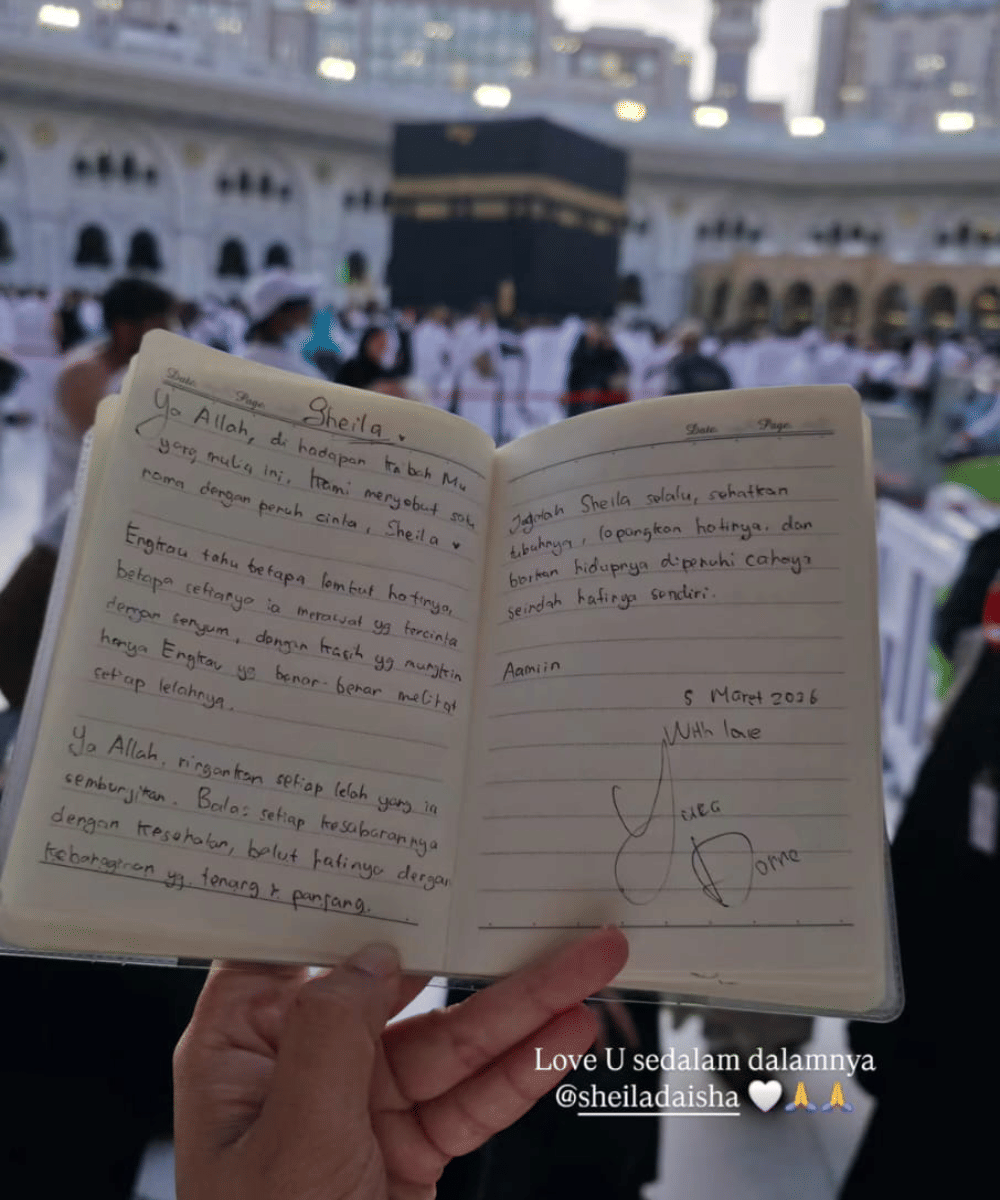 Date Page
Sheila
Ya Allah, di hadapan ka'bah Mu
yang mulia ini, kami menyebut satu
nama dengan penuh cinta, Sheila
Engkau tahu betapa lembut hatinya,
betapa setianya ia merawat yg tercinta
dengan senyum, dengan kasih yg mungkin
hanya Engkau yg benar-benar melihat
setiap lelahnya.
Ya Allah, ringankan setiap lelah yang ia
sembunyikan. Balas setiap kesabarannya
dengan kesehatan, balut hatinya dengan
kebahagiaan yg tenang & panjang.
Date Page
Jagalah Sheila selalu, sehatkan
tubuhnya, lapangkan hatinya, dan
biarkan hidupnya dipenuhi cahaya
seindah hatinya sendiri.
Aamiin
5 Maret 2026
With love
Love U sedalam dalamnya
@sheiladaisha 🤍🙏🙏